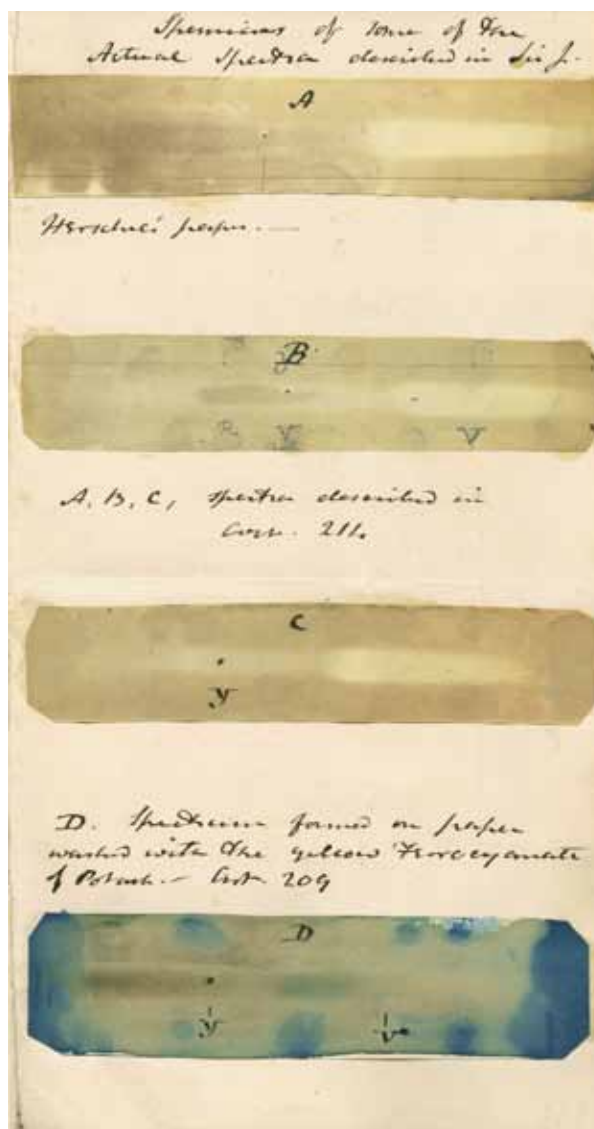 Specimens of some of the
Actual Spectra described in Sir J.
A
Herschel's paper. —
B
R Y V
A, B, C, spectra described in
211.
C
y
D. Spectrum formed on paper
washed with the yellow Ferrocyanate
of Potash. — Art. 209
D
y v